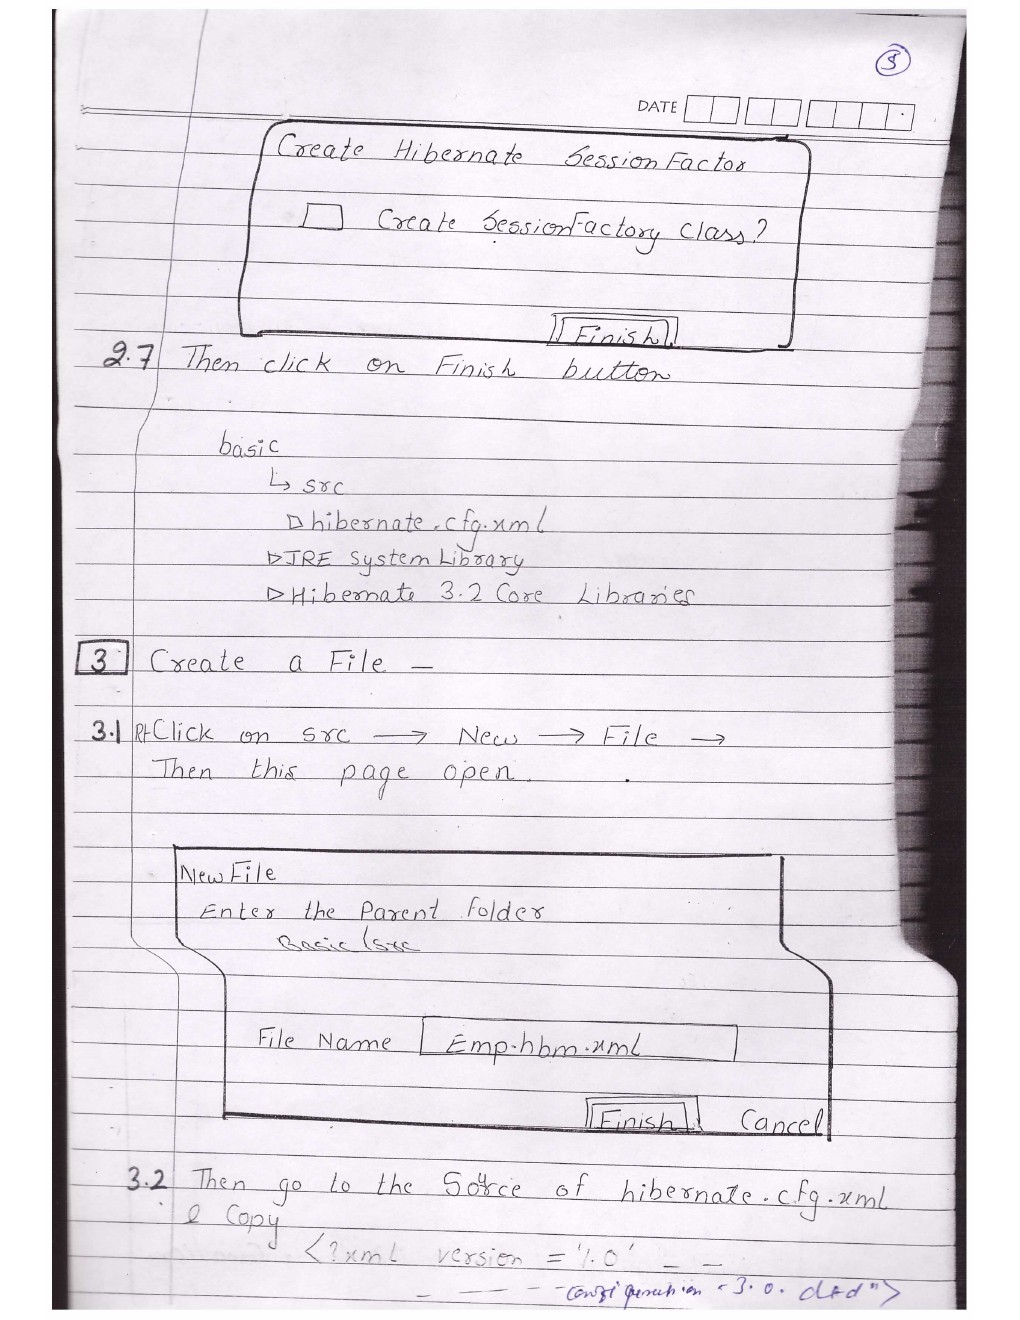 3
DATE
Create Hibernate Session Factor
Create SessionFactory Class?
Finish
2.7 Then click on Finish button
basic
↳ src
▷ hibernate.cfg.xml
▷ JRE System Library
▷ Hibernate 3.2 Core Libraries
3 Create a File —
3.1 Rt Click on src → New → File →
Then this page open.
New File
Enter the Parent folder
Basic/src
File Name Emp.hbm.xml
Finish Cancel
3.2 Then go to the Source of hibernate.cfg.xml
& Copy
<?xml version = '1.0' _ _
_ — - - - configuration - 3.0. dtd">